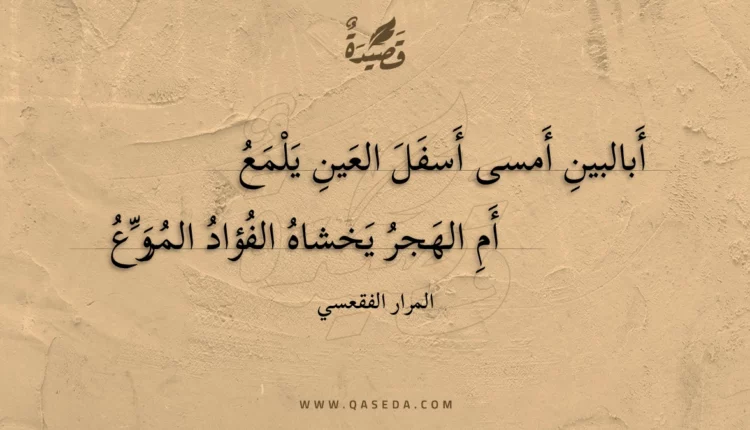 قَصِيْدَةٌ
أَبالبينِ أَمسى أَسفَلَ العَينِ يَلْمَعُ
أَمِ الهَجرُ يَخشاهُ الفُؤادُ المُوَرِّعُ
المرار الفقعسي
WWW.QASEDA.COM